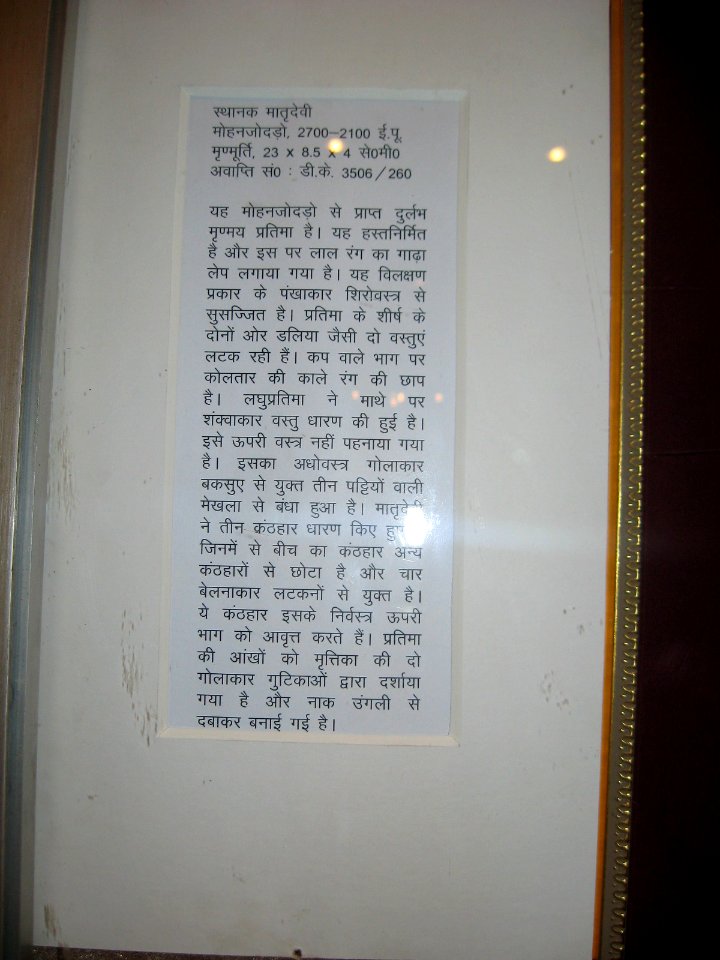 स्थानक मातृदेवी
मोहनजोदड़ो, 2700–2100 ई.पू.
मृण्मूर्ति, 23 x 8.5 x 4 से0मी0
अवाप्ति सं0 : डी.के. 3506/260
यह मोहनजोदड़ो से प्राप्त दुर्लभ
मृण्मय प्रतिमा है। यह हस्तनिर्मित
है और इस पर लाल रंग का गाढ़ा
लेप लगाया गया है। यह विलक्षण
प्रकार के पंखाकार शिरोवस्त्र से
सुसज्जित है। प्रतिमा के शीर्ष के
दोनों ओर डलिया जैसी दो वस्तुएं
लटक रही हैं। कप वाले भाग पर
कोलतार की काले रंग की छाप
है। लघुप्रतिमा ने माथे पर
शंक्वाकार वस्तु धारण की हुई है।
इसे ऊपरी वस्त्र नहीं पहनाया गया
है। इसका अधोवस्त्र गोलाकार
बकसुए से युक्त तीन पट्टियों वाली
मेखला से बंधा हुआ है। मातृदेवी
ने तीन कंठहार धारण किए
जिनमें से बीच का कंठहार अन्य
कंठहारों से छोटा है और चार
बेलनाकार लटकनों से युक्त है।
ये कंठहार इसके निर्वस्त्र ऊपरी
भाग को आवृत्त करते हैं। प्रतिमा
की आंखों को मृत्तिका की दो
गोलाकार गुटिकाओं द्वारा दर्शाया
गया है और नाक उंगली से
दबाकर बनाई गई है।